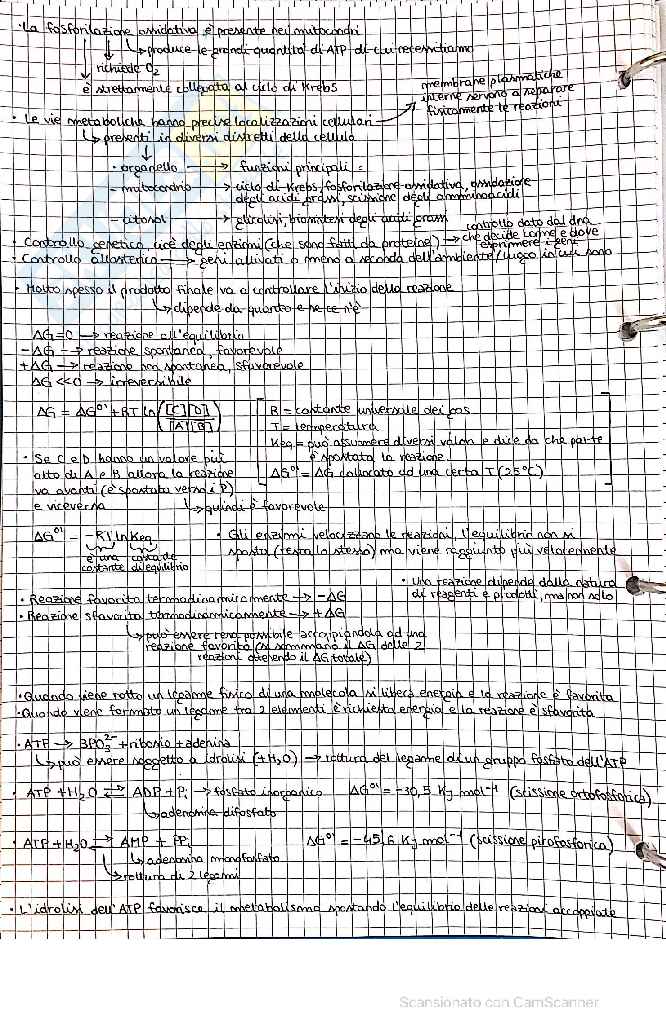 · La fosforilazione ossidativa è presente nei mitocondri
↳ produce le grandi quantità di ATP di cui necessitiamo
richiede O2
è strettamente collegata al ciclo di Krebs
· Le vie metaboliche hanno precise localizzazioni cellulari → membrane plasmatiche
interne servono a separare
fisicamente le reazioni
↳ presenti in diversi distretti della cellula
· organello → funzioni principali:
- mitocondrio → ciclo di Krebs, fosforilazione ossidativa, ossidazione
degli acidi grassi, scissione degli amminoacidi
- citosol → glicolisi, biosintesi degli acidi grassi
· Controllo genetico, cioè degli enzimi (che sono fatti da proteine) → controllo dato dal dna
che decide come e dove
esprimere i geni
· Controllo allosterico → geni attivati o meno a seconda dell'ambiente/luogo in cui sono
· Molto spesso il prodotto finale va a controllare l'inizio della reazione
↳ dipende da quanto e ne ce n'è
ΔG=0 → reazione all'equilibrio
-ΔG → reazione spontanea, favorevole
+ΔG → reazione non spontanea, sfavorevole
ΔG <<0 → irreversibile
ΔG = ΔG°' + RT ln([C][D]/[A][B])
R = costante universale dei gas
T = temperatura
Keq = può assumere diversi valori e dice da che parte
è spostata la reazione
ΔG°' = ΔG collocato ad una certa T (25°C)
· Se C e D hanno un valore più
alto di A e B allora la reazione
va avanti (è spostata verso i P)
e viceversa ↳ quindi è favorevole
ΔG°' = -RT ln Keq
è una costante
costante di equilibrio
· Gli enzimi velocizzano le reazioni, l'equilibrio non si
sposta (resta lo stesso) ma viene raggiunto più velocemente
· Una reazione dipende dalla natura
di reagenti e prodotti, ma non solo
· Reazione favorita termodinamicamente → -ΔG
· Reazione sfavorita termodinamicamente → +ΔG
↳ può essere resa possibile accoppiandola ad una
reazione favorita (si sommano i ΔG delle 2
reazioni ottenendo il ΔG totale)
· Quando viene rotto un legame fisico di una molecola si libera energia e la reazione è favorita
· Quando viene formato un legame tra 2 elementi è richiesta energia e la reazione è sfavorita
· ATP → 3PO3²⁻ + ribosio + adenina
↳ può essere soggetto a idrolisi (+H2O) → rottura del legame di un gruppo fosfato dell'ATP
· ATP + H2O ⇌ ADP + Pi → fosfato inorganico ΔG°' = -30,5 Kj mol⁻¹ (scissione ortofosforica)
↳ adenosina difosfato
· ATP + H2O ⇌ AMP + PPi ΔG°' = -45,6 Kj mol⁻¹ (scissione pirofosforica)
↳ adenosina monofosfato
↳ rottura di 2 legami
· L'idrolisi dell'ATP favorisce il metabolismo spostando l'equilibrio delle reazioni accoppiate
Scansionato con CamScanner